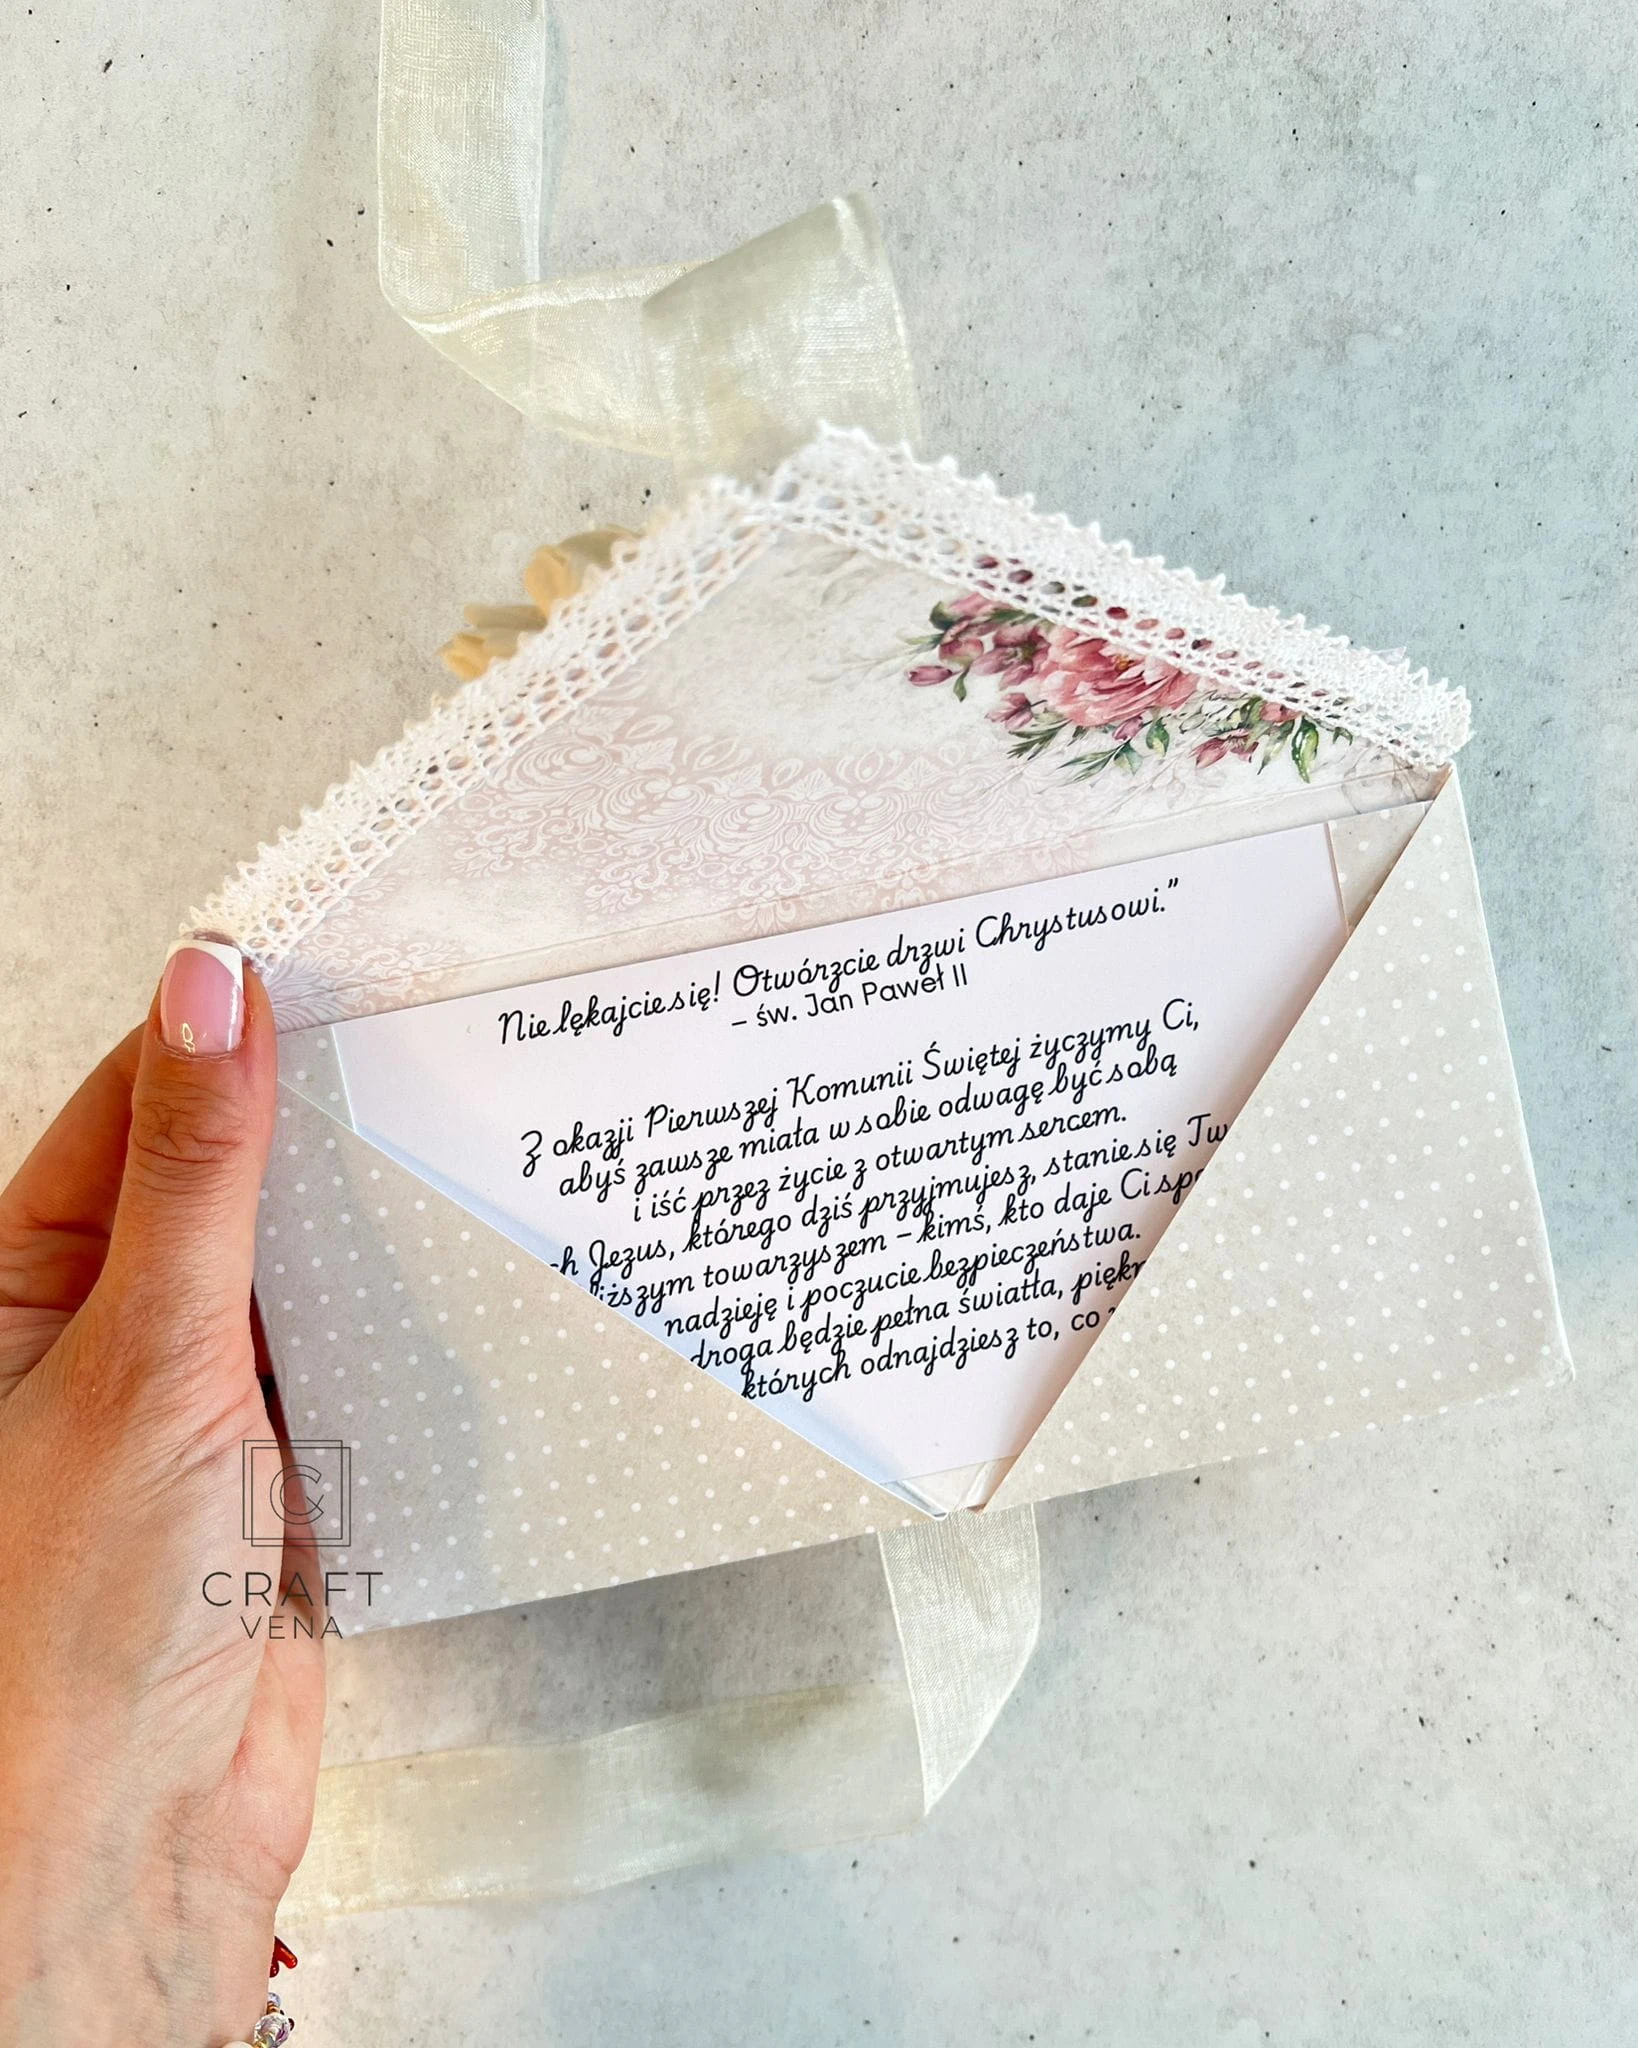 Nie lękajcie się! Otwórzcie drzwi Chrystusowi.”
– św. Jan Paweł II
Z okazji Pierwszej Komunii Świętej życzymy Ci,
abyś zawsze miała w sobie odwagę być sobą
i iść przez życie z otwartym sercem.
Jezus, którego dziś przyjmujesz, stanie się
towarzyszem – kimś, kto daje Ci
nadzieję i poczucie bezpieczeństwa.
droga będzie pełna światła,
których odnajdziesz to, co
CRAFT
VENA